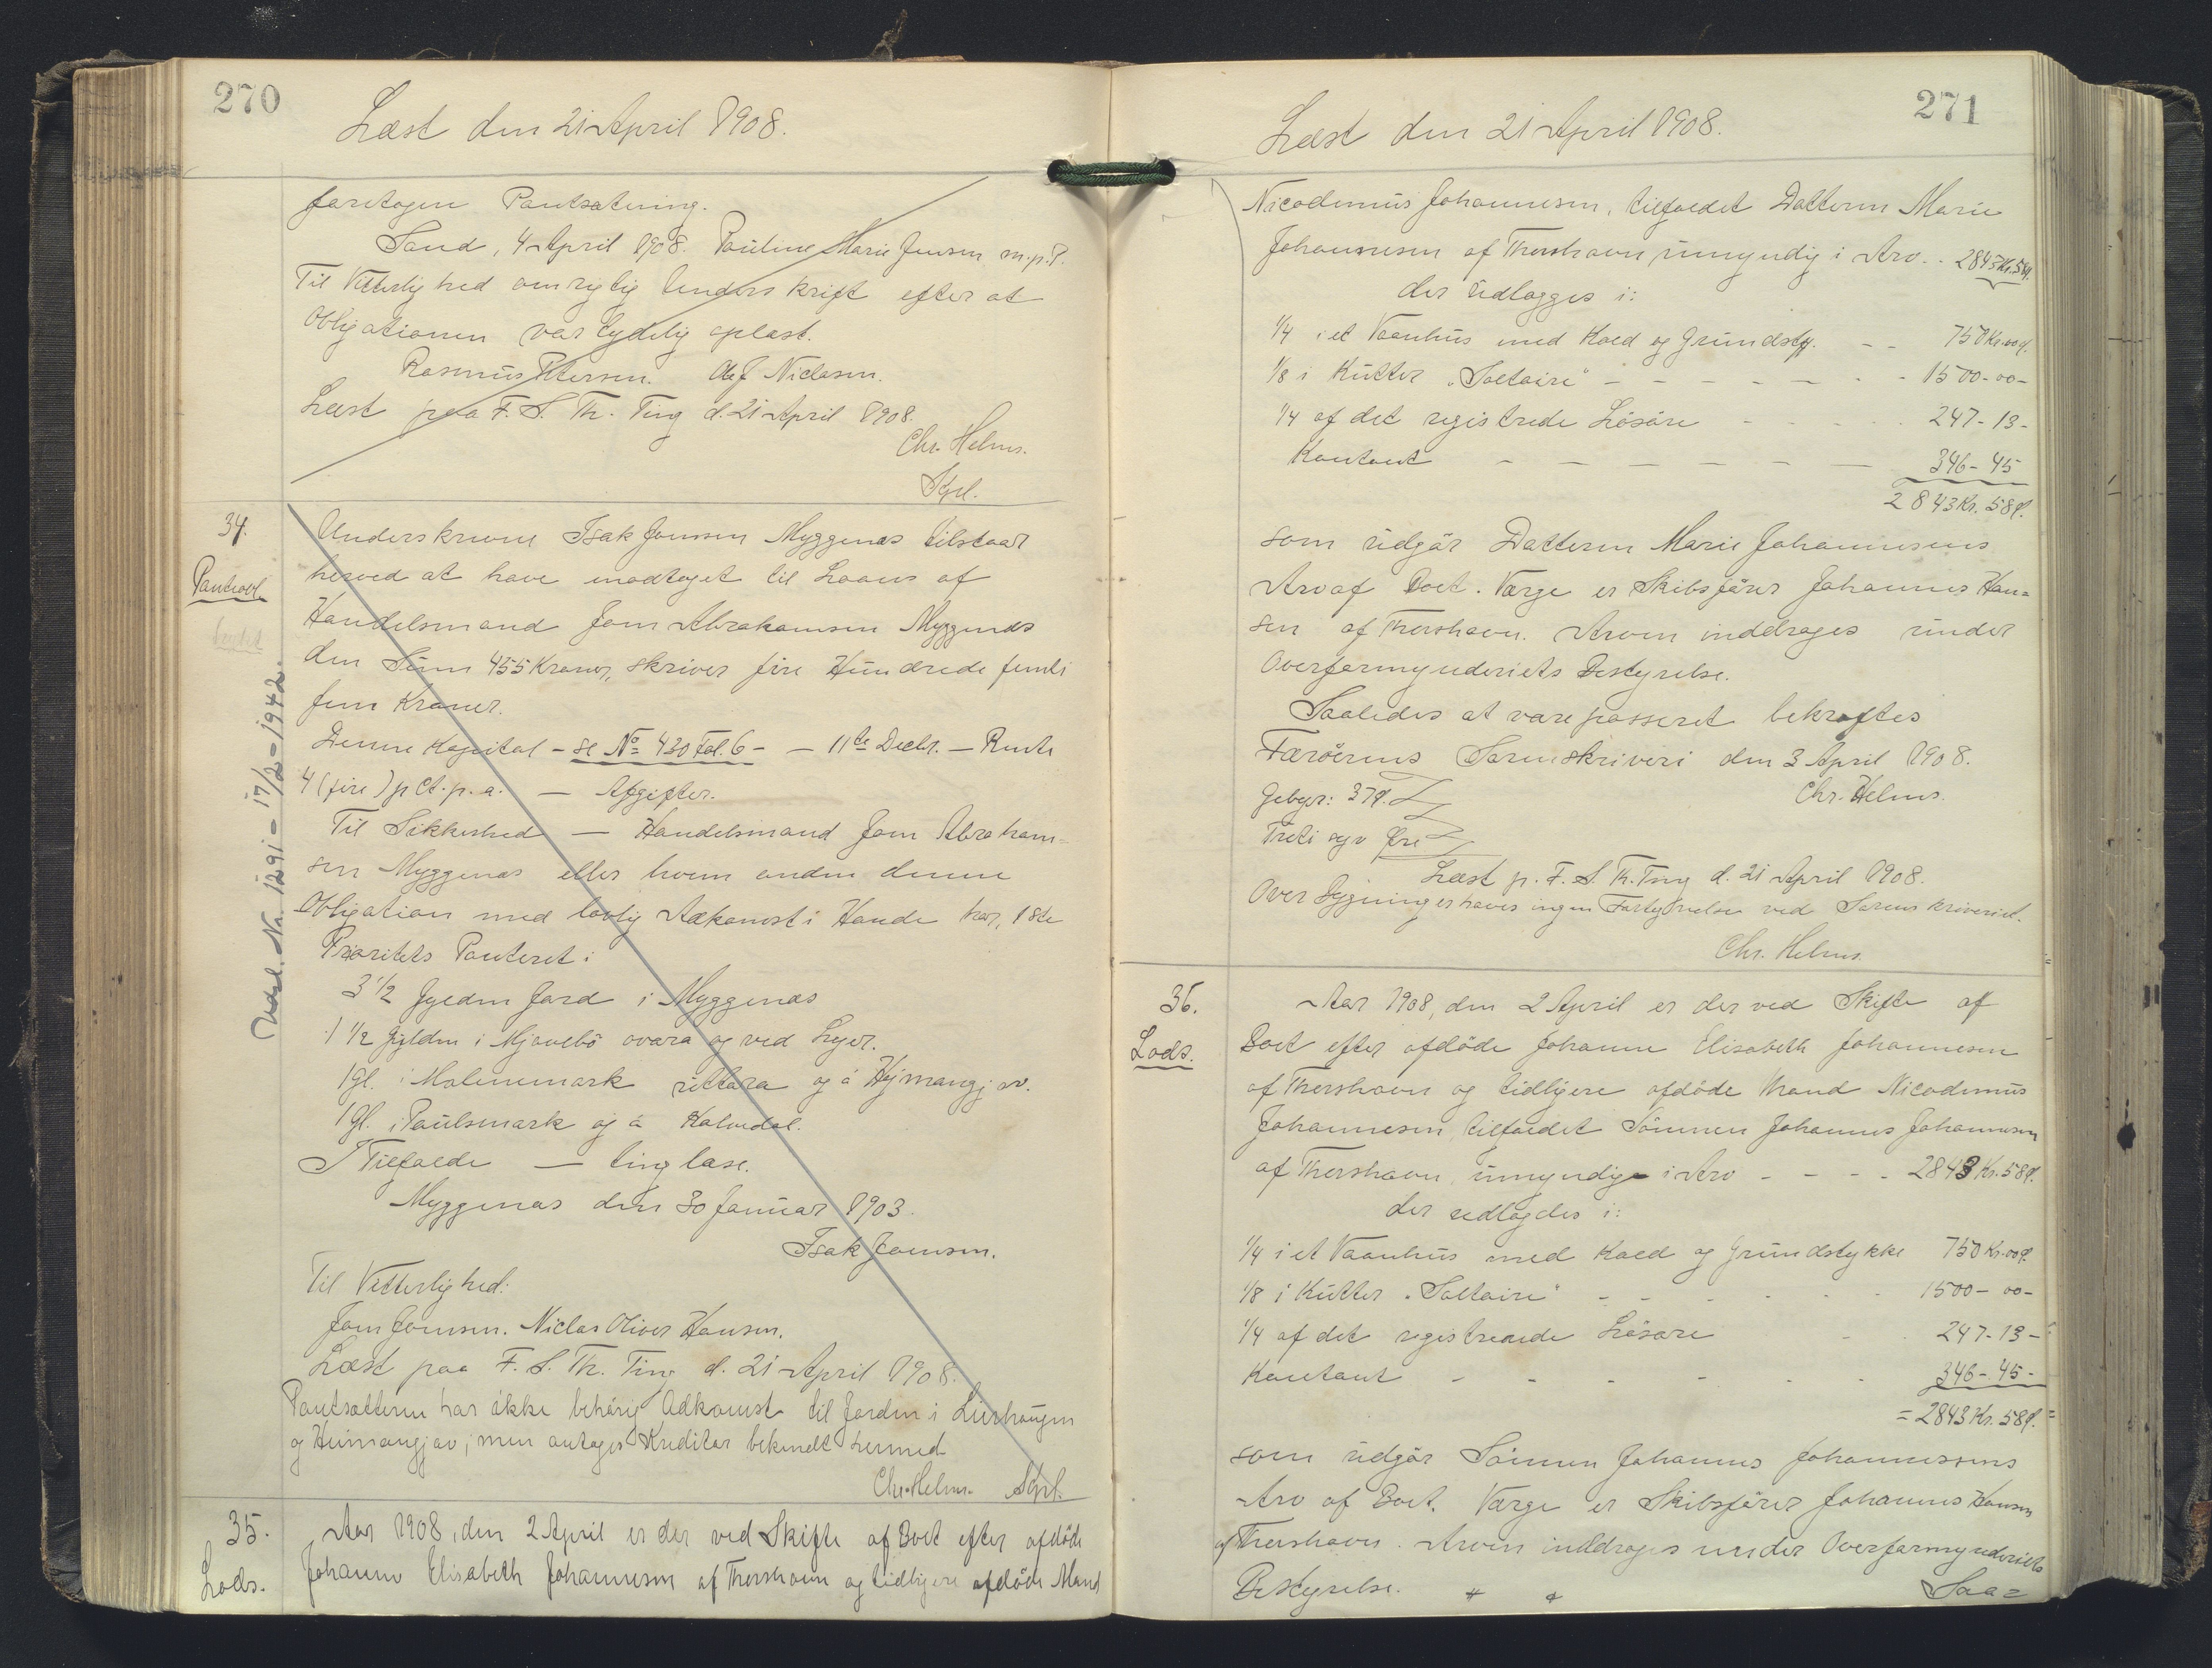 270
Læst den 21 April 1908.
foretagen Pantsætning.
Sand, 4 April 1908. Pauline Marie Jensen m.p.P.
Til Vitterlighed om rigtig Underskrift efter at
Obligationen var tydelig oplæst.
Rasmus Petersen. Niclasen.
Læst paa F. S. Th. Ting d. 21 April 1908.
Chr. Helms.
Sgel.
34.
Pantcobl.
Udsl. Nr. 1291 - 17/2 - 1942.
Underskrevne Isak Joensen Myggenæs tilstaar
herved at have modtaget til Laans af
Handelsmand Joen Abrahamsen Myggenæs
den Sum 455 Kroner, skriver fire Hundrede femti
fem Kroner.
Denne Kapital - se No 430 Fol. 6 - - 11te Decbr. - Rente
4 (fire) p Ct. p. a. - Afgifter.
Til Sikkerhed - Handelsmand Joen Abraham-
sen Myggenæs eller hvem anden denne
Obligation med lovlig Adkomst i Hænde har, 1ste
Prioritets Panteret i
3 1/2 Gylden Jord i Myggenæs
1 1/2 Gylden i Mjavebö ovara og ved Lyer.
1 Gl. i Malenemark rittara og á Hejmangjov.
1 Gl. i Paulsmark og á Kalvedal.
I Tilfælde - tinglæse.
Myggenæs den 30 Januar 1903.
Isak Joensen.
Til Vitterlighed:
Joen Joensen. Niclas Oliver Hansen.
Læst paa F. S. Th. Ting d. 21 April 1908.
Pantsætteren har ikke behörig Adkomst til Jorden i Lierhaugen
og Heimangjov; men antages Kreditor bekendt hermed
Chr. Helms. Sgel.
35.
Lods.
Aar 1908, den 2 April er der ved Skifte af Boet efter afdöde
Johanne Elisabeth Johannesen af Thorshavn og tidligere afdöde Mand
271
Læst den 21 April 1908.
Nicodemus Johannesen, tilfaldet Datteren Marie
Johannesen af Thorshavn umyndig i Arv. . 2843 Kr. 58 Ø.
der udlægges i:
1/4 i et Vaanhus med Kaed og Grundsty. - - 750 Kr. 00 Ø.
1/8 i Kutter "Soltaire" - - - - - - - 1500 - 00 -
1/4 af det registrede Lösöre - - - - 247 - 13 -
Kontant - - - - - - 346 - 45
2843 Kr. 58 Ø.
som udgör Datteren Marie Johannesens
Arv af Boet. Værge er Skibsförer Johannes Han=
sen af Thorshavn. Arven inddrages under
Overformynderiets Bestyrelse.
Saaledes at være passeret bekræftes
Færöernes Sorenskriveri den 3 April 1908.
Gebyr: 37 Ø. Chr. Helms.
Treti syv Øre
Læst p. F. S. Th. Ting d. 21 April 1908.
Over Bygninger haves ingen Fortegnelse ved Sorenskriveriet.
Chr. Helms.
36.
Lods.
Aar 1908, den 2 April er der ved Skifte af
Boet efter afdöde Johanne Elisabeth Johannesen
af Thorshavn og tidligere afdöde Mand Nicodemus
Johannesen, tilfaldet Sönnen Johannes Johannesen
af Thorshavn umyndige i Arv - - - - 2843 Kr. 58 Ø.
der udlægdes i:
1/4 i et Vaanhus med Kaed og Grundstykke 750 Kr. 00 Ø.
1/8 i Kutter "Soltaire" - - - - - 1500 - 00 -
1/4 af det registrerede Lösöre - 247 - 13 -
Kontant - - - - - - 346 - 45 -
= 2843 Kr. 58 Ø. =
som udgör Sönnen Johannes Johannessens
Arv af Boet. Værge er Skibsförer Johannes Hansen
af Thorshavn. Arven inddrages under Overformynderiets
Bestyrelse. Saa=